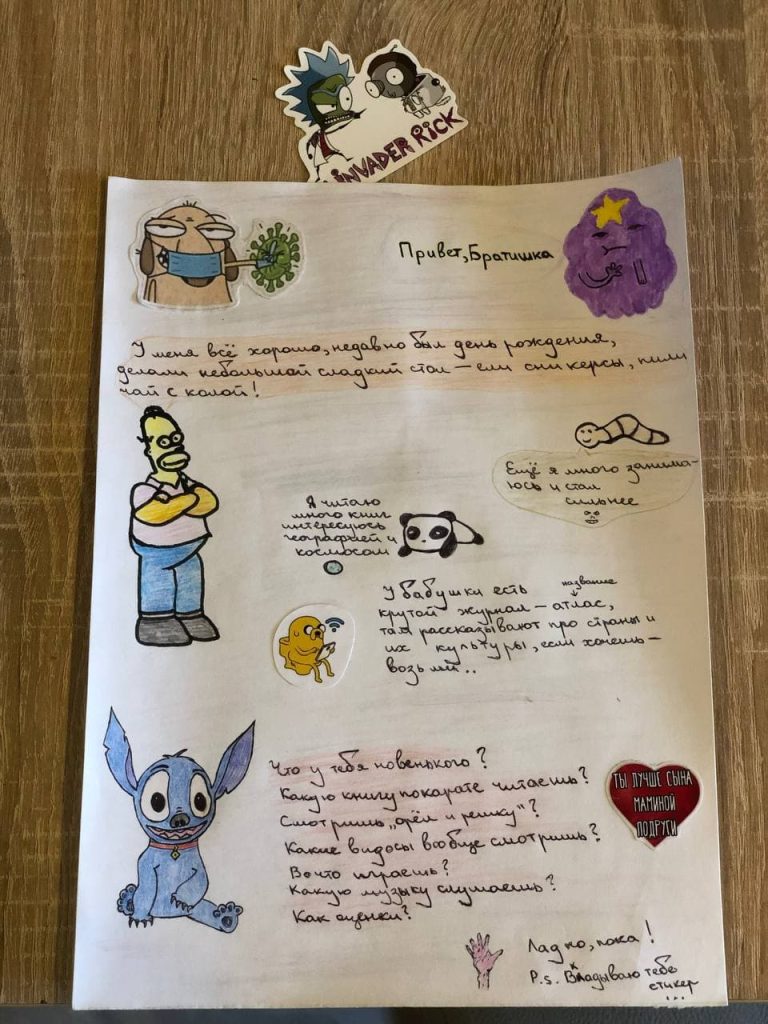 INVADER RICK
Привет, Братишка
У меня всё хорошо, недавно был день рождения,
делали небольшой сладкий стол — ели сникерсы, пили
чай с колой!
Ещё я много занима-
юсь и стал
сильнее
Я читаю
много книг
интересуюсь
географией и
космосом
У бабушки есть название
крутой журнал — атлас,
там рассказывают про страны и
их культуры, если хочешь —
возьми..
Что у тебя новенького?
Какую книгу по карате читаешь?
Смотришь „орёл и решку"?
Какие видосы вообще смотришь?
Во что играешь?
Какую музыку слушаешь?
Как оценки?
ТЫ ЛУЧШЕ СЫНА
МАМИНОЙ
ПОДРУГИ
Ладно, пока!
P.s. Вкладываю тебе
стикер
...